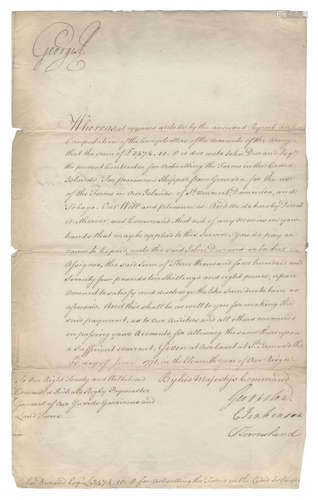 George R
Whereas it appears as well by the annexed Report and
Computation of the Comptrollers of the Accounts of the Army
that the sum of £3474.10.8 is due unto John Durand Esqr.
the present Contractor for Victualling the Forces in the Ceded
Islands, for provisions shipped from Grenada for the use
of the Forces in our Islands of St. Vincent, Dominica, and
Tobago. Our Will and pleasure is, And we do hereby Direct
Authorize, and Command, that out of any Monies in your
hands that may be applied to this Service, you do pay or
cause to be paid, unto the said John Durand or to his
Assigns, the said Sum of Three thousand four hundred and
Seventy four pounds ten Shillings and eight pence, upon
Account to satisfy and discharge the like sum due to him as
aforesaid. And this shall be as well to you for making the
said payment, as to our Auditors and all others concerned
in passing your Accounts for allowing the same thereupon
a sufficient warrant. Given at our Court at St. James's the
day of June 1771, in the Eleventh year of Our Reign.
To Our Right Trusty and Welbeloved
By his Majesty's Command
Richard Rigby Paymaster
General of our Guards Garrisons and
Land Forces
C Jenkinson
Townshend
£3474.10.8 for victualling the Forces in the Ceded Islands